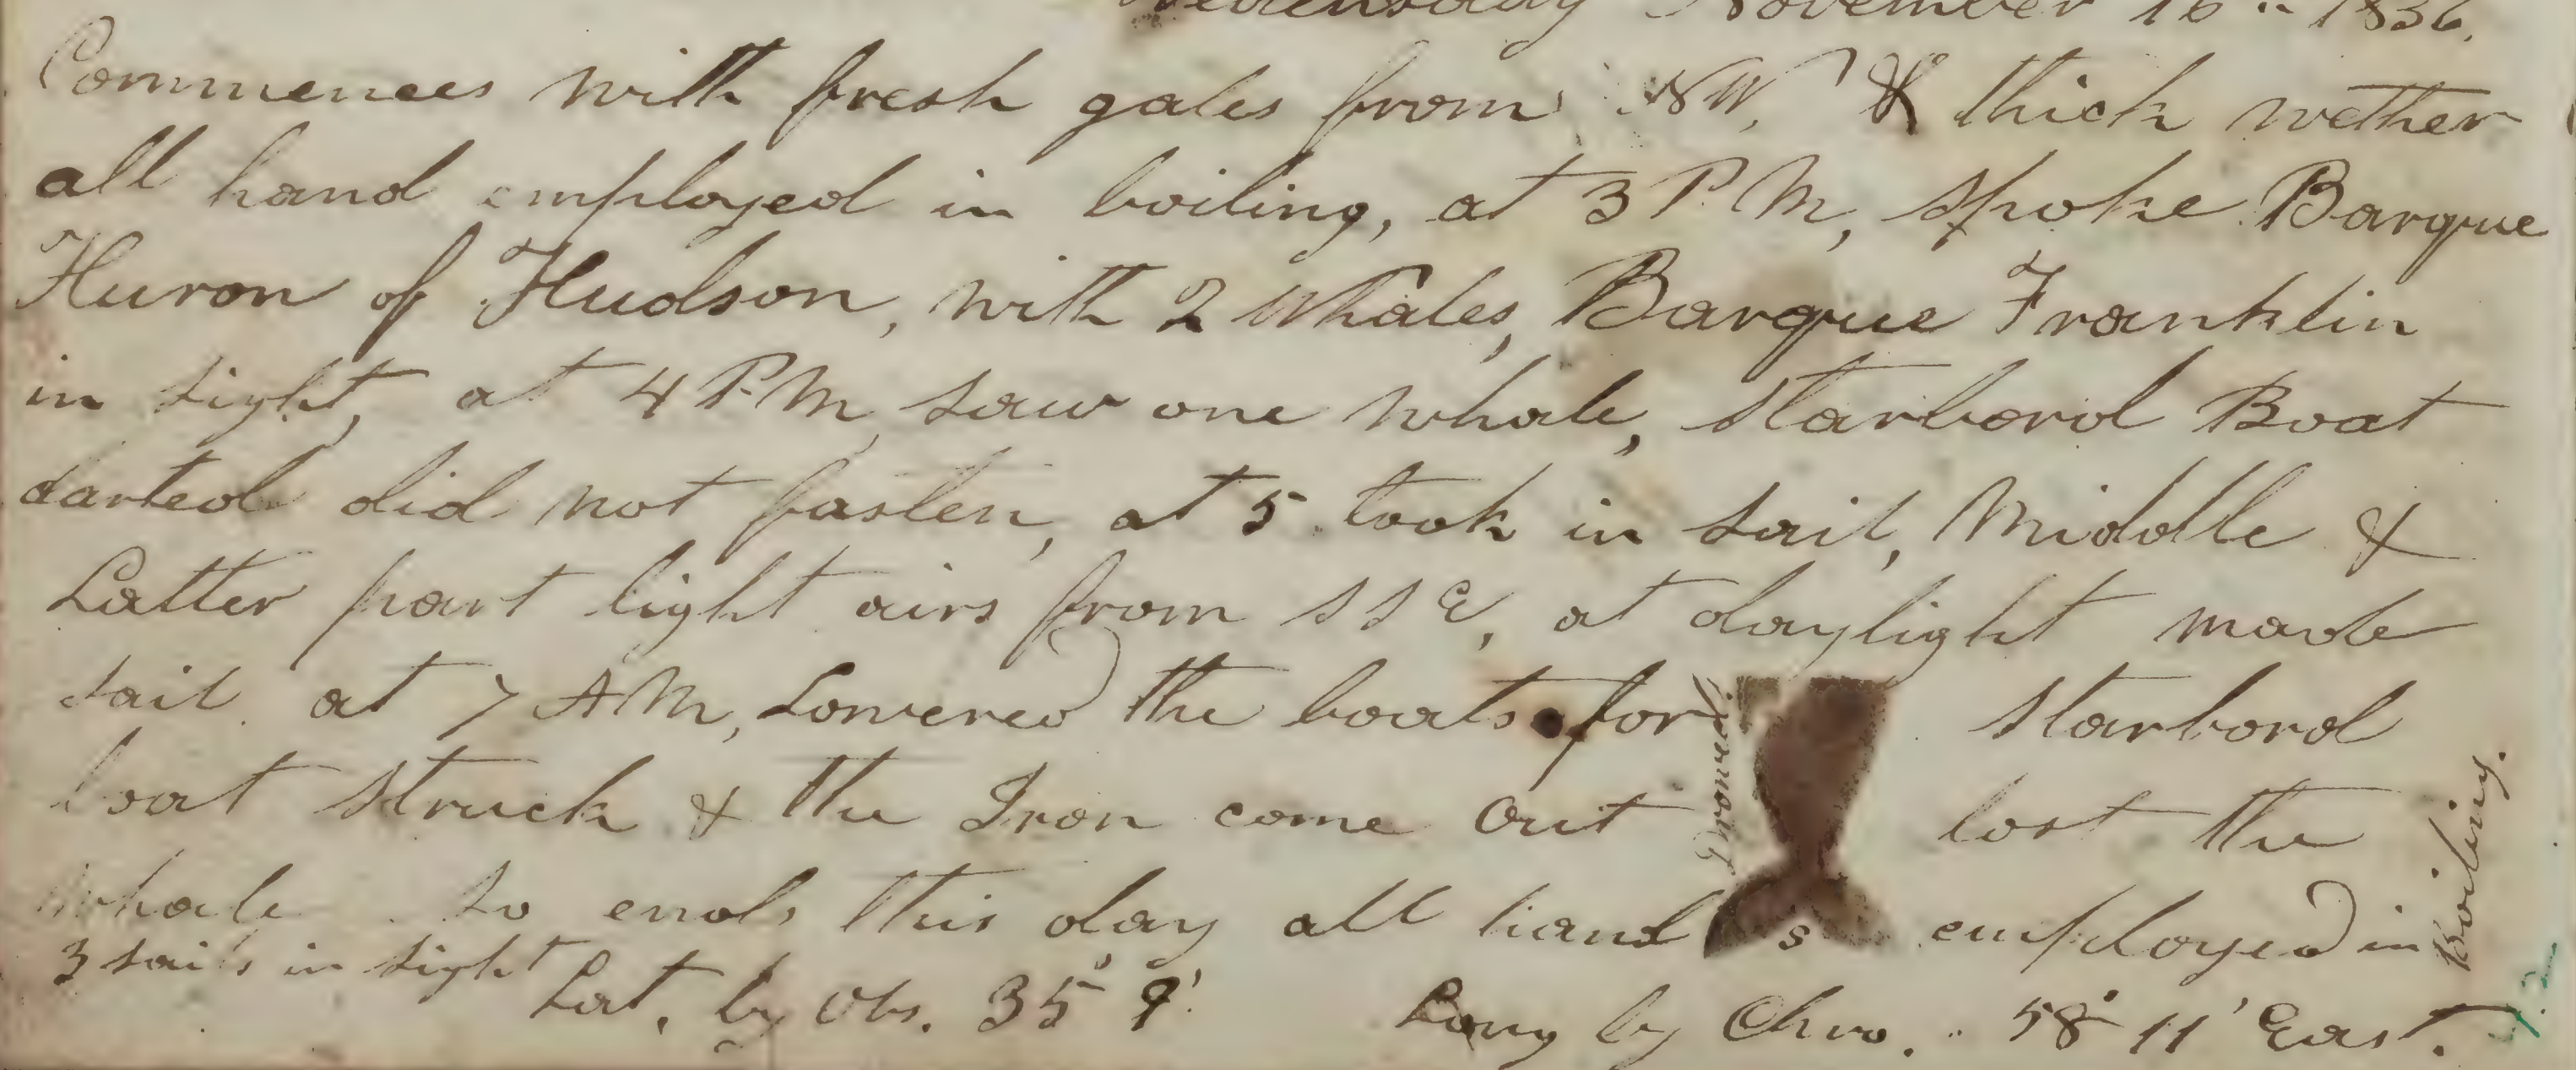 Wedensday November 16" 1836.
Commences with fresh gales from NW, & thick wether
all hand employed in boiling, at 3 P.M, spoke Barque
Huron of Hudson, with 2 Whales, Barque Franklin
in sight, at 4 P.M, saw one whale, starbord Boat
darted did not fasten, at 5 took in sail, Middle &
Latter part light airs from SSE, at daylight made
sail. at 7 AM, Lowered the boats for starbord
boat struck & the Iron come out lost the
whale so ends this day all hands employed in Boiling.
3 sails in sight
Lat. by Obs. 35° 9' Long by Chro. 58° 11' East.